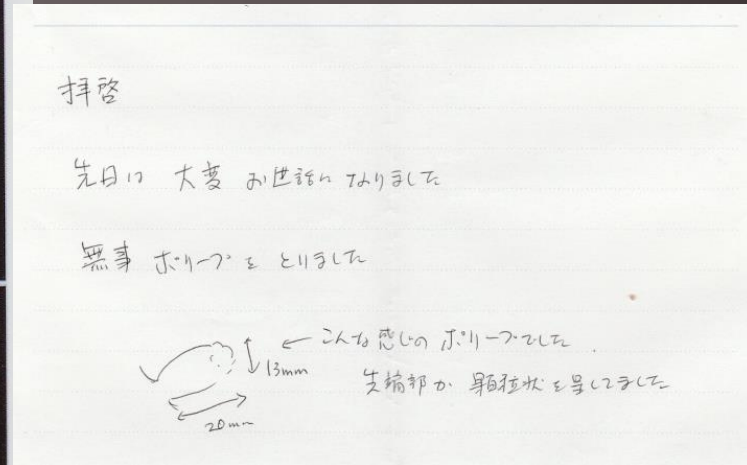 拝啓
先日は 大変 お世話になりました
無事 ポリープを とりました
← こんな感じの ポリープでした.
13mm
先端部が 顆粒状を呈してました
20mm